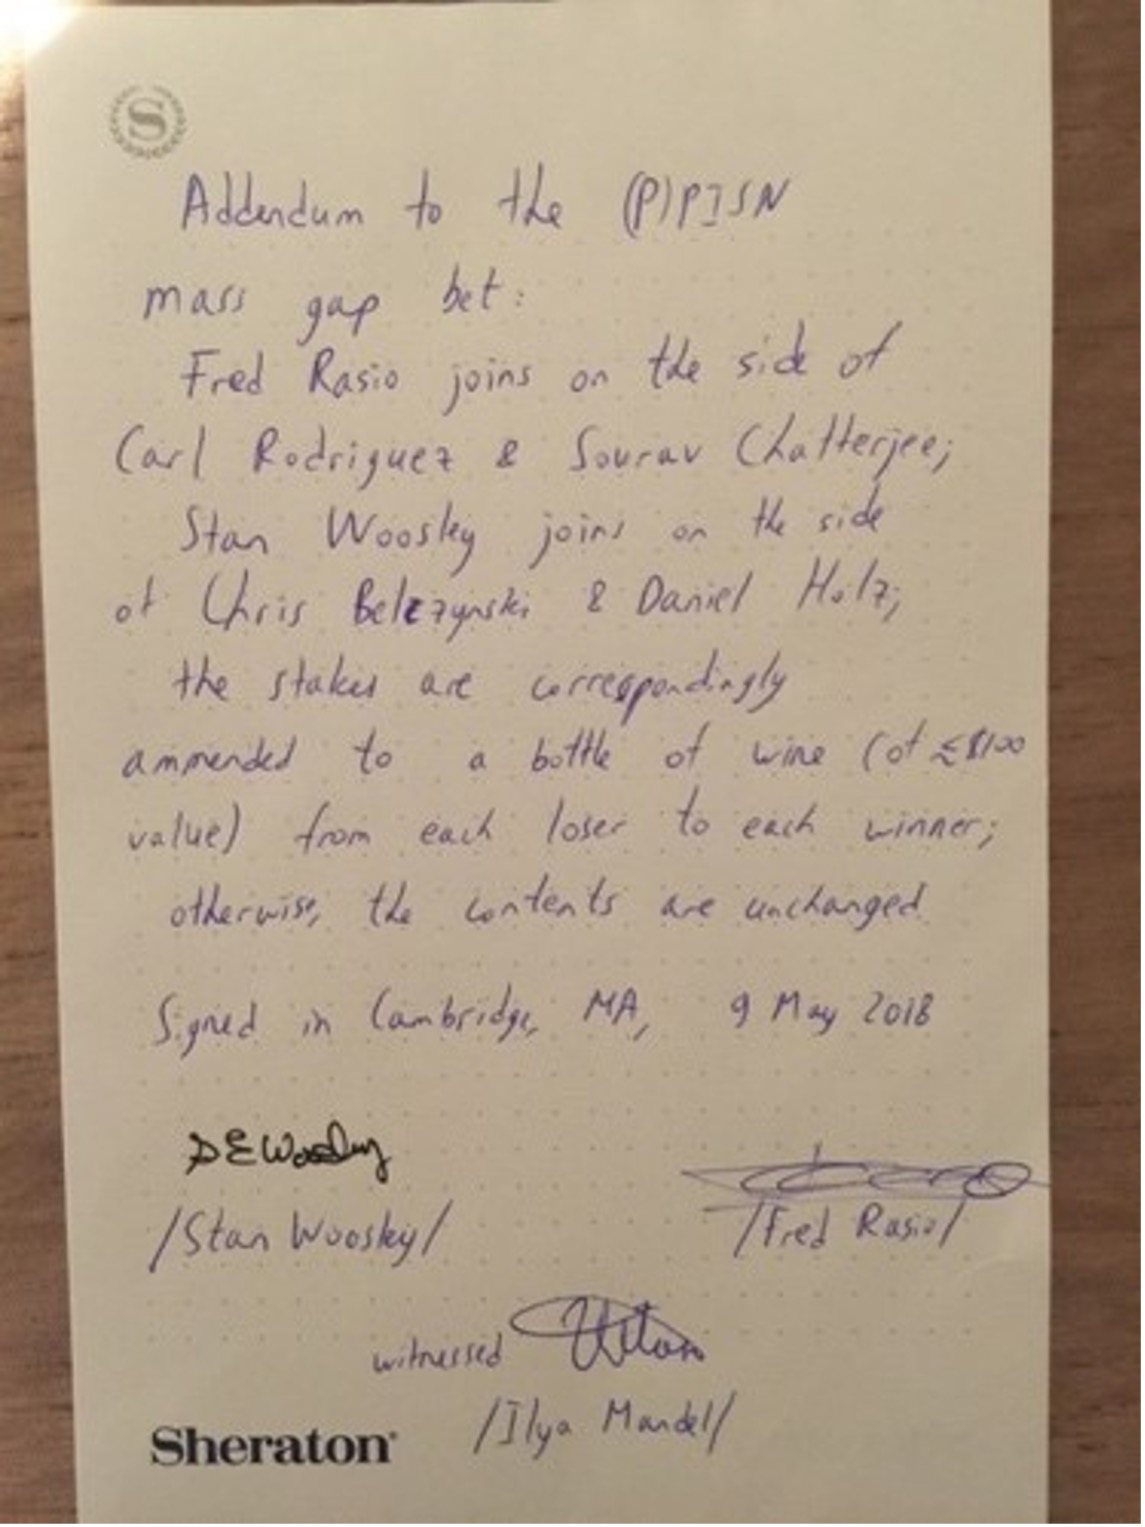 S
Addendum to the (P)PISN
mass gap bet:
Fred Rasio joins on the side of
Carl Rodriguez & Sourav Chatterjee;
Stan Woosley joins on the side
of Chris Belczynski & Daniel Holz;
the stakes are correspondingly
ammended to a bottle of wine (of ≲$100
value) from each loser to each winner;
otherwise, the contents are unchanged
Signed in Cambridge, MA, 9 May 2018
S E Woosley
/Stan Woosley/ /Fred Rasio/
witnessed
/Ilya Mandel/
Sheraton